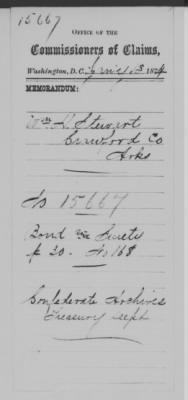 15667
OFFICE OF THE
Commissioners of Claims,
Washington, D.C., 187
MEMORANDUM:
Wm Stewart
Crawford Co
Arks
No 15667
Bond as Surety
p 20. No 168
Confederate Archives
Treasury Dept